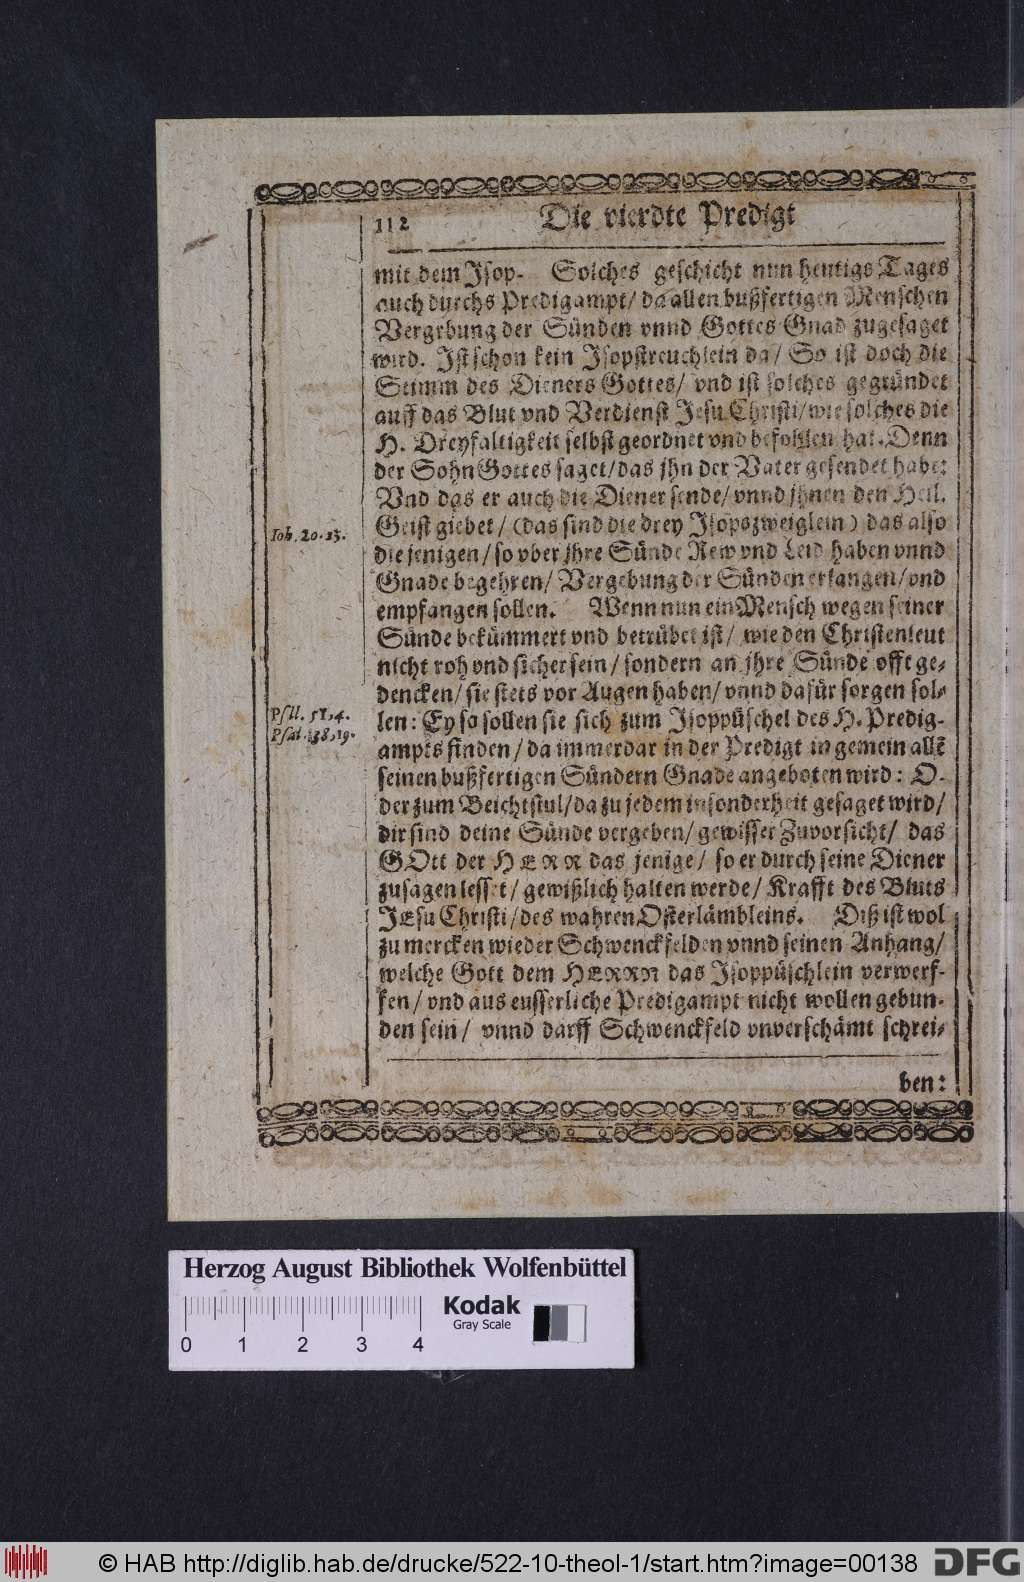 112 Die vierdte Predigt
mit dem Jsop. Solches geschicht nun heutigs Tages
auch durchs Predigampt/ da allen bußfertigen Menschen
Vergebung der Sünden vnnd Gottes Gnad zugesaget
wird. Jst schon kein Jsopstreuchlein da/ So ist doch die
Stimm des Dieners Gottes/ vnd ist solches gegründet
auff das Blut vnd Verdienst Jesu Christi/ wie solches die
H. Dreyfaltigkeit selbst geordnet vnd befohlen hat. Denn
der Sohn Gottes saget/ das jhn der Vater gesendet habe:
Vnd das er auch die Diener sende/ vnnd jhnen den Heil.
Geist giebet/ (das sind die drey Jsopszweiglein) das also
Ioh. 20. 23.
die jenigen/ so vber jhre Sünde Rew vnd Leid haben vnnd
Gnade begehren/ Vergebung der Sünden erlangen/ vnd
empfangen sollen. Wenn nun ein Mensch wegen seiner
Sünde bekümmert vnd betrübet ist/ wie den Christenleut
nicht roh vnd sicher sein/ sondern an jhre Sünde offt ge-
dencken/ sie stets vor Augen haben/ vnnd dafür sorgen sol-
Psal. 51, 4.
Psal. 38, 19.
len: Ey so sollen sie sich zum Jsoppüschel des H. Predig-
ampts finden/ da immerdar in der Predigt in gemein allē
seinen bußfertigen Sündern Gnade angeboten wird: O-
der zum Beichtstul/ da zu jedem insonderheit gesaget wird/
dir sind deine Sünde vergeben/ gewisser Zuvorsicht/ das
GOtt der HERR das jenige/ so er durch seine Diener
zusagen lesset/ gewißlich halten werde/ Krafft des Bluts
JEsu Christi/ des wahren Osterlämbleins. Diß ist wol
zu mercken wieder Schwenckfelden vnnd seinen Anhang/
welche Gott dem HERRN das Jsoppüschlein verwerf-
fen/ vnd aus eusserliche Predigampt nicht wollen gebun-
den sein/ vnnd darff Schwenckfeld vnverschämt schrei-
ben:
Herzog August Bibliothek Wolfenbüttel
Kodak
Gray Scale
0 1 2 3 4
© HAB http://diglib.hab.de/drucke/522-10-theol-1/start.htm?image=00138
DFG